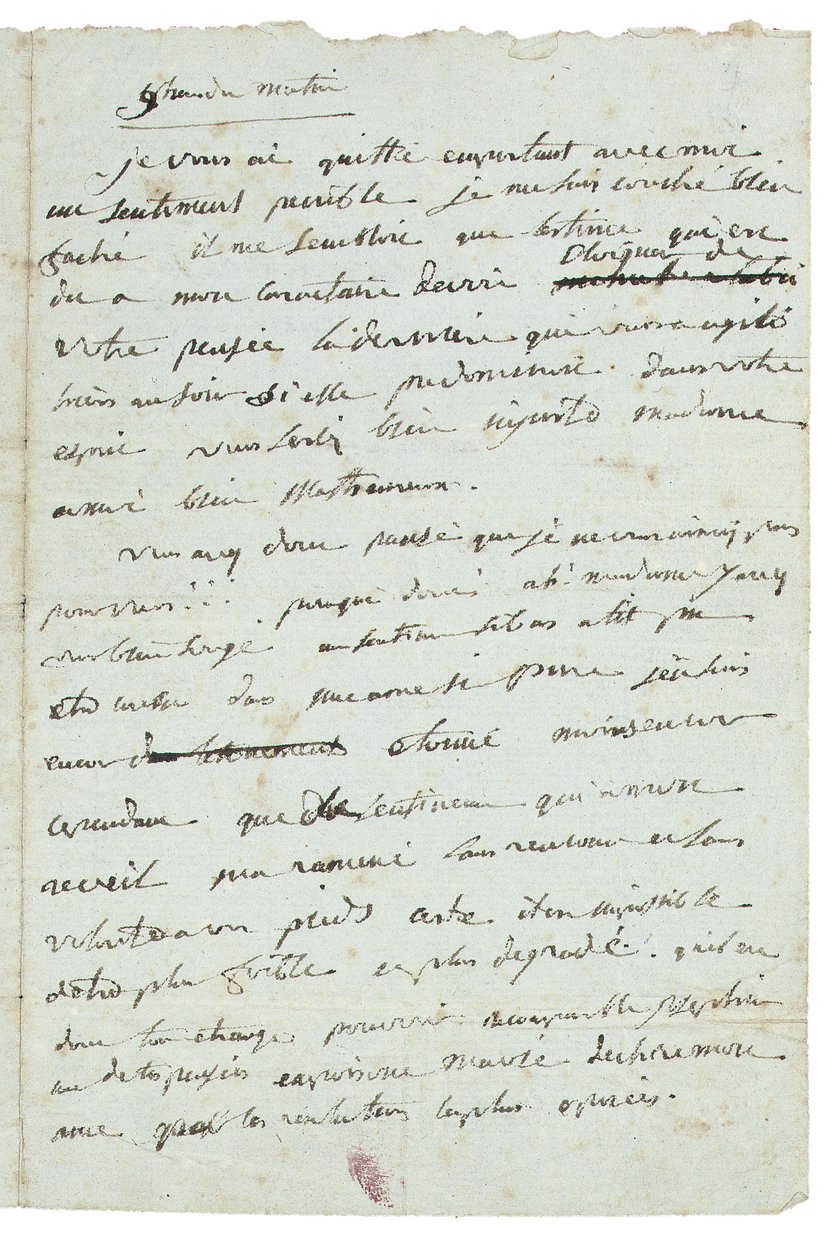 9 heure du matin
je vous ai quitté emportant avec moi
un sentiment penible je me suis couché bien
faché il me sembloit que lestime qui est
du a mon caractaire devoit
eloigner de
votre pensée la derniere qui vous a agité
hiers au soir si elle predominoit dans votre
esprit vous seriez bien injuste madame
et moi bien Malheureux.
vous avez donc pensé que je ne vous aimez pas
pour vous!!! pour qui donc ah! madame
un sentiment si bas a til pu
etre dans une ame si pure jen suis
encor etonné moins encor
cependant que de sentiment qui a mon
reveil ma ramené sans rencune et sans
volonté a vos pieds certe il est impossible
detre plus foible et plus degradé. quel est
donc ton etrange pouvoir incomparable Josephine
une de tes pensées empoisonne ma vie dechire mon
ame par les resolutions les plus oposées.